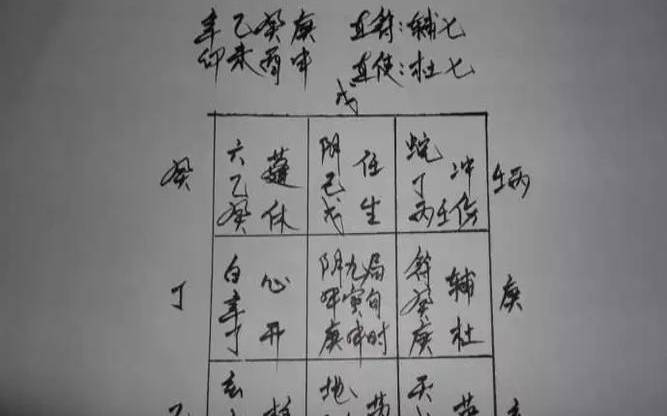 辛乙癸庚 直符:辅七
卯未酉申 直使:杜七
戊
癸
六 蓬
乙
癸 休
阴 任
己
戊 生
蛇 冲
丁
丙壬伤
壬丙
丁
白 心
辛
丁 开
阴九局
甲寅旬
庚申时
符 辅
癸
庚 杜
庚
玄
地
天